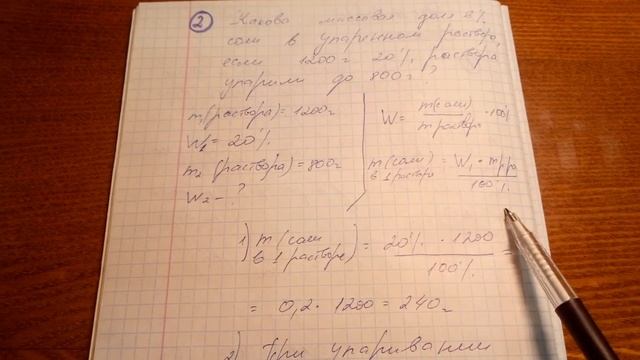 2 Какова массовая доля в %
соли в упаренном растворе,
если 1200г 20% раствора
упарили до 800г?
m₁(раствора) = 1200г
W₁ = 20%
m₂(раствора) = 800г
W₂ - ?
W = m(соли) / m раствора · 100%
m(соли) в 1 растворе = W₁ · m р-ра / 100%
1) m(соли в 1 растворе) = 20% · 1200 / 100% =
= 0,2 · 1200 = 240г
2) При упаривании